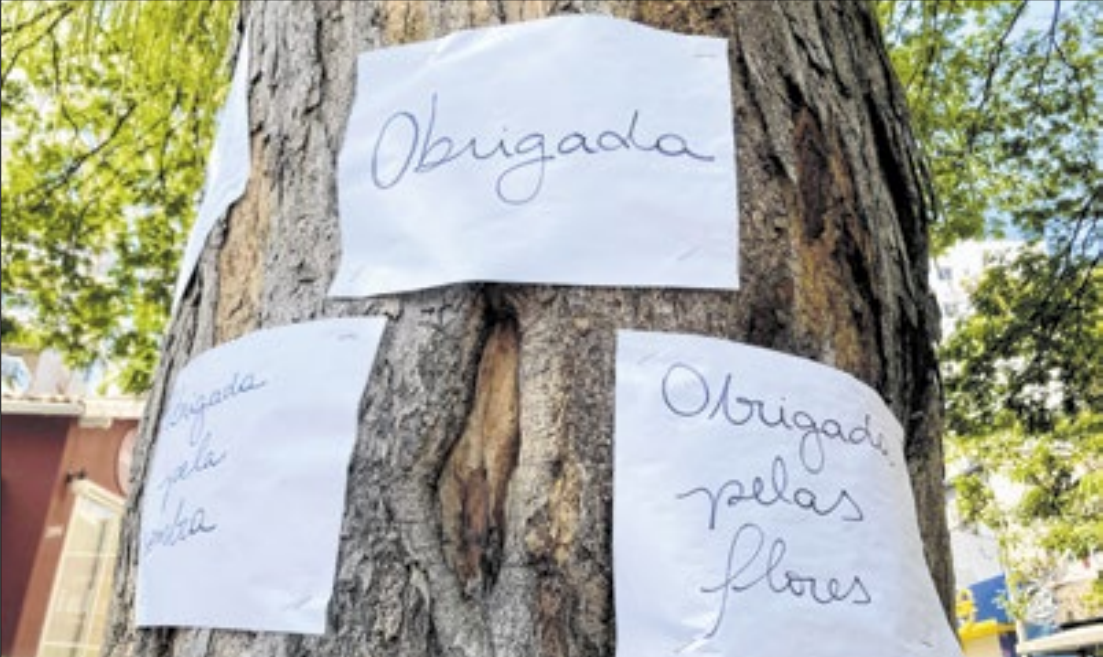 Obrigada
rigada
pela
Obrigada
pelas
flores